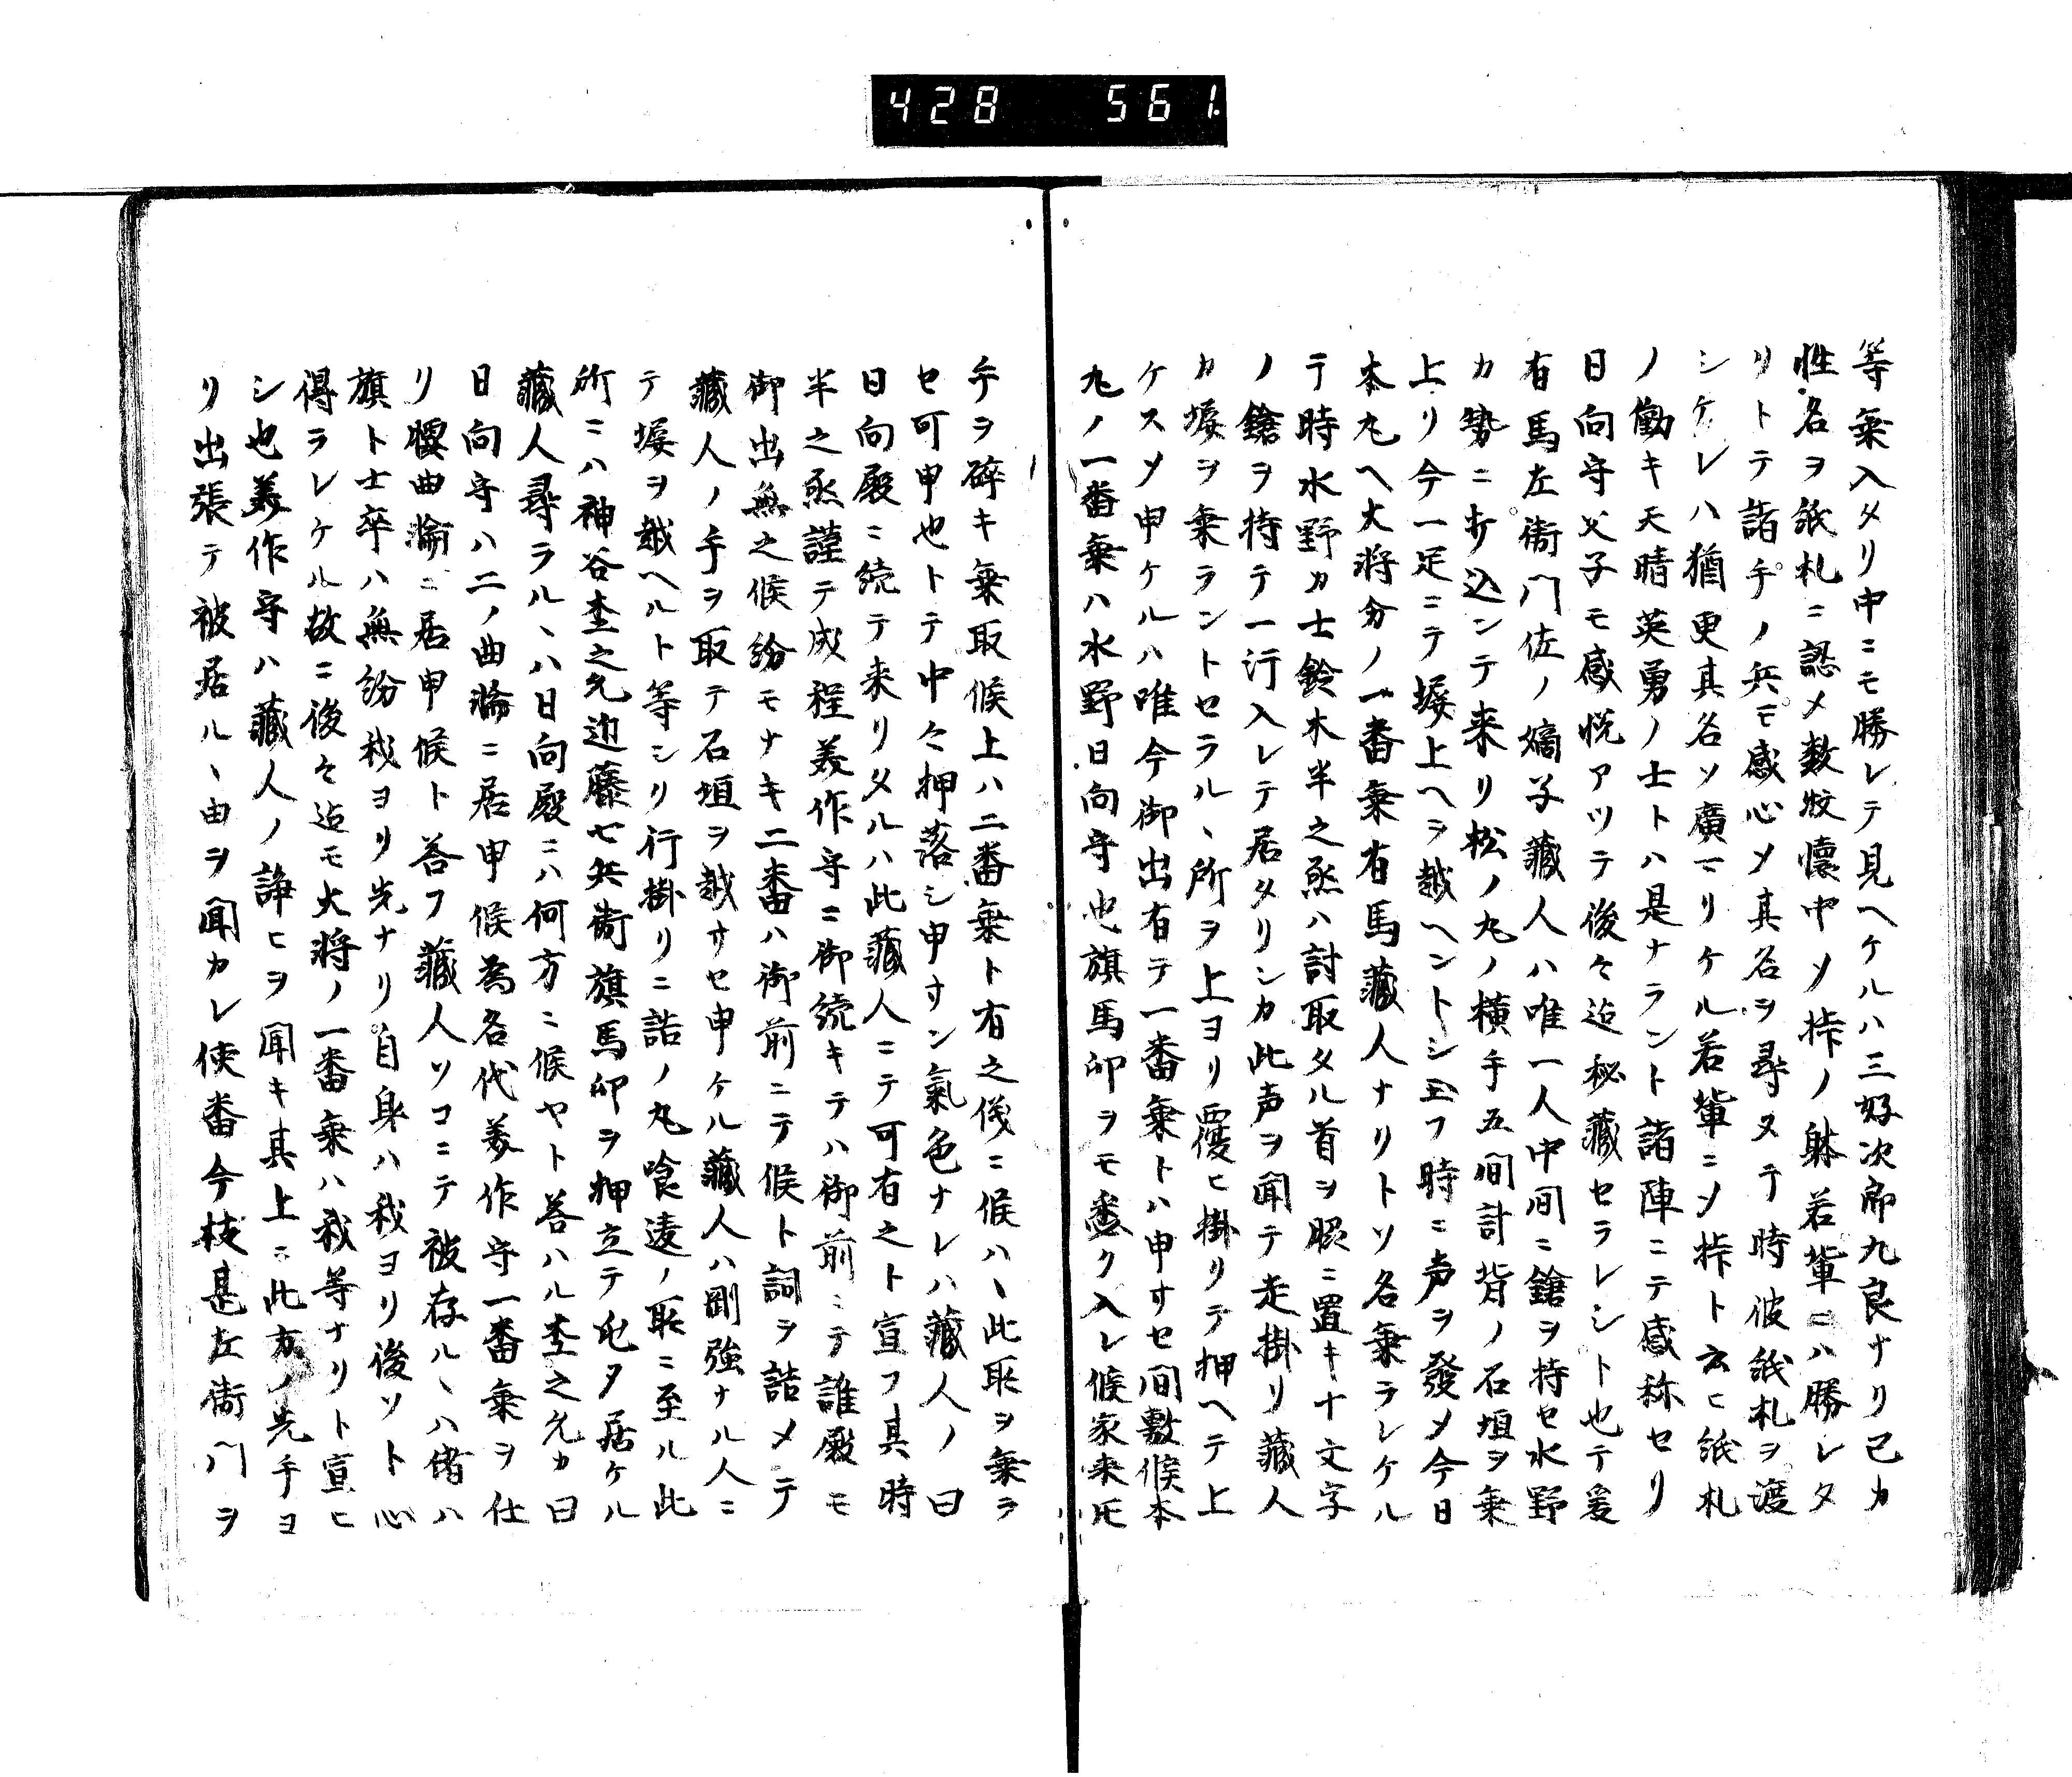 428 561
等乗入タリ中ニモ勝レテ見ヘケルハ三好次郎九良ナリ己カ
性名ヲ紙札ニ認メ数牧懐中メ持ノ躰若輩ニハ勝レタ
リトテ諸手ノ兵モ感心メ其名ヲ尋ヌテ時彼紙札ヲ渡
シケレハ猶更其名ソ廣マリケル若輩ニメ持ト云ヒ紙札
ノ働キ天晴英勇ノ士トハ是ナラント諸陣ニテ感称セリ
日向守父子モ感悦アツテ後々迠秘藏セラレシト也テ爰
有馬左衛門佐ノ嫡子藏人ハ唯一人中間ニ鎗ヲ持セ水野
カ勢ニ打込ンテ来リ松ノ丸ノ横手五間計背ノ石垣ヲ乗
上リ今一足ニテ塀上ヘヲ越ヘントシ玉フ時ニ声ヲ發メ今日
本丸ヘ大将分ノ一番乗有馬藏人ナリトソ名乗ラレケル
テ時水野カ士鈴木半之烝ハ討取タル首ヲ脇ニ置キ十文字
ノ鎗ヲ持テ一行入レテ居タリシカ此声ヲ聞テ走掛リ藏人
カ塀ヲ乗ラントセラルヽ所ヲ上ヨリ覆ヒ掛リテ押ヘテ上
ケスメ申ケルハ唯今御出有テ一番乗トハ申サセ間敷候本
丸ノ一番乗ハ水野日向守也旗馬印ヲモ悉ク入レ候家来氏
手ヲ碎キ乗取候上ハ二番乗ト有之儀ニ候ハヽ此所ヲ乗ラ
セ可申也トテ中々押落シ申サン氣色ナレハ藏人ノ曰
日向殿ニ続テ来リタルハ此藏人ニテ可有之ト宣フ其時
半之烝謹テ成程美作守ニ御続キテハ御前ニテ誰殿モ
御出無之候紛モナキ二番ハ御前ニテ候ト詞ヲ詰メテ
藏人ノ手ヲ取テ石垣ヲ越サセ申ケル藏人ハ剛強ナル人ニ
テ塀ヲ越ヘルト等シリ行掛リニ詰ノ丸喰違ノ所ニ至ル此
所ニハ神谷杢之允近藤七兵衛旗馬印ヲ押立テ屯タ居ケル
藏人尋ラルヽハ日向殿ニハ何方ニ候ヤト答ハル杢之允カ曰
日向守ハ二ノ曲輪ニ居申候為名代美作守一番乗ヲ仕
リ腰曲輪ニ居申候ト答フ藏人ソコニテ被存ルヽハ偖ハ
旗ト士卒ハ無紛我ヨリ先ナリ自身ハ我ヨリ後ソト心
得ラレケル故ニ後々迠モ大将ノ一番乗ハ我等ナリト宣ヒ
シ也美作守ハ藏人ノ諍ヒヲ聞キ其上ニ此方ノ先手ヨ
リ出張テ被居ルヽ由ヲ聞カレ使番今枝甚左衛門ヲ